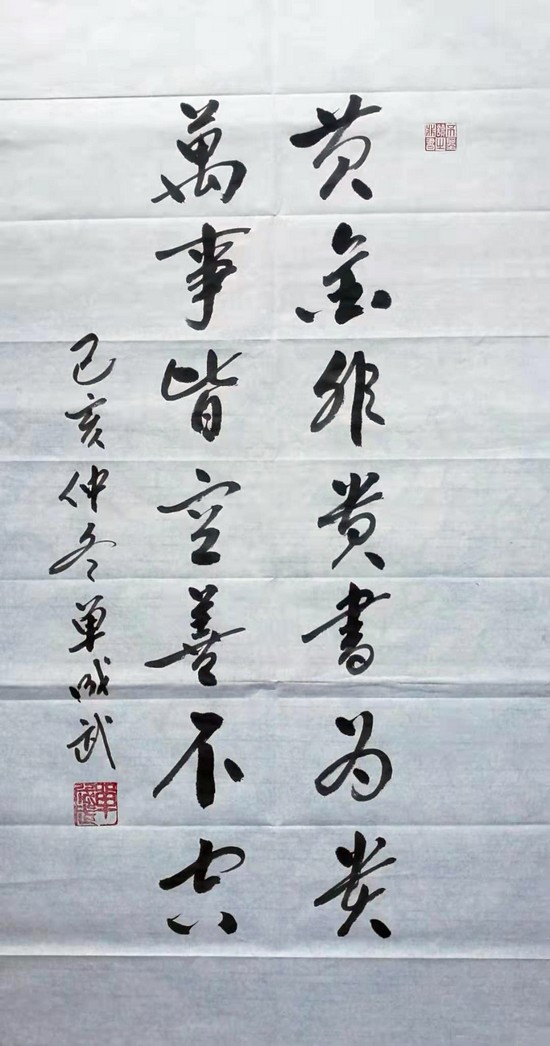 黄金非贵书为贵
萬事皆空善不空
己亥仲冬单成武